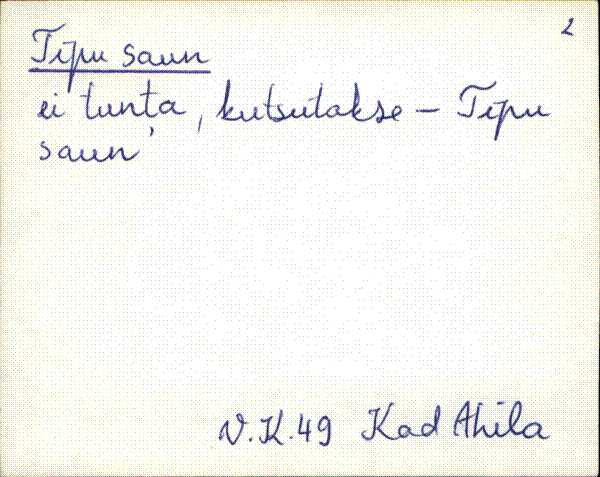 2
Tipu saun
ei tunta, kutsutakse – Tipu
saun'
V.K.49 Kad Ahila